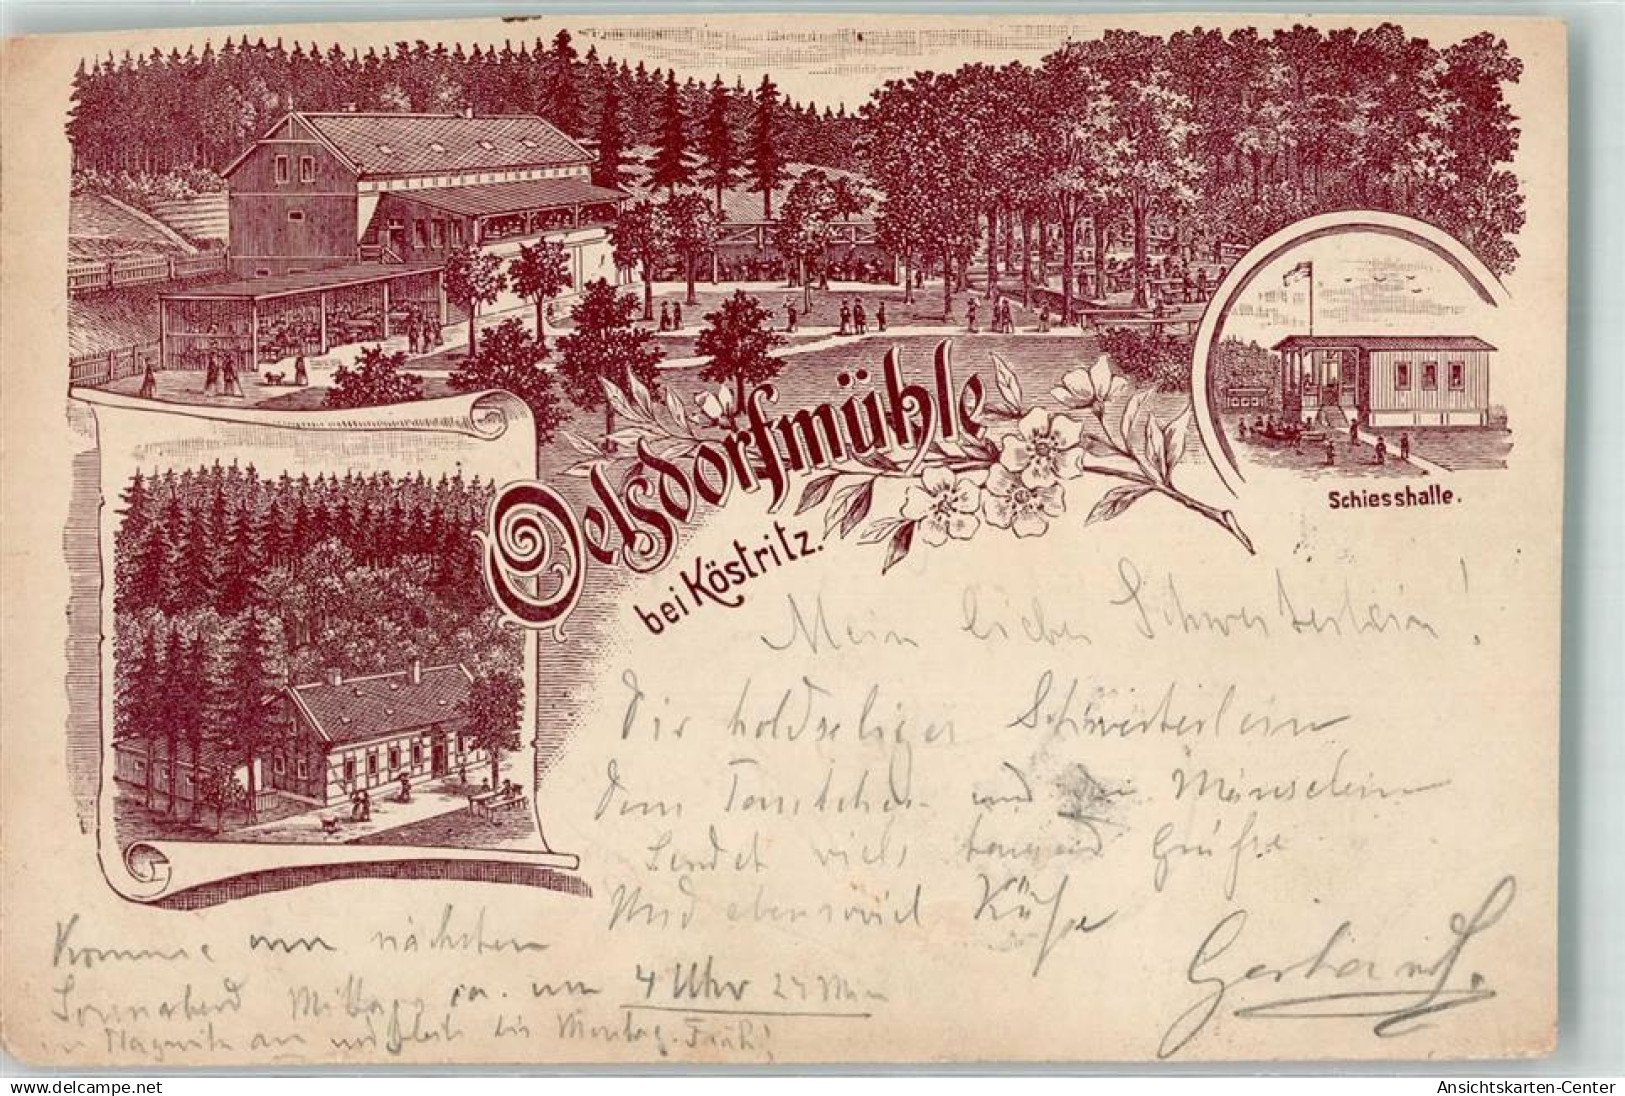 Oelsdorfmühle
bei Köstritz.
Schiesshalle.
Mein liebes Schwesterlein!
Dir holdseliger Schwesterlein
Dem Tantchen und den Mänselein
Sendet viele tausend Grüße
Und ebensoviel Küße
Gerhard S.
Komme am nächsten
Sonnabend Mittag ca. um 4 Uhr 24 Min
in an und bleibe bis Montag Früh!
Ansichtskarten-Center